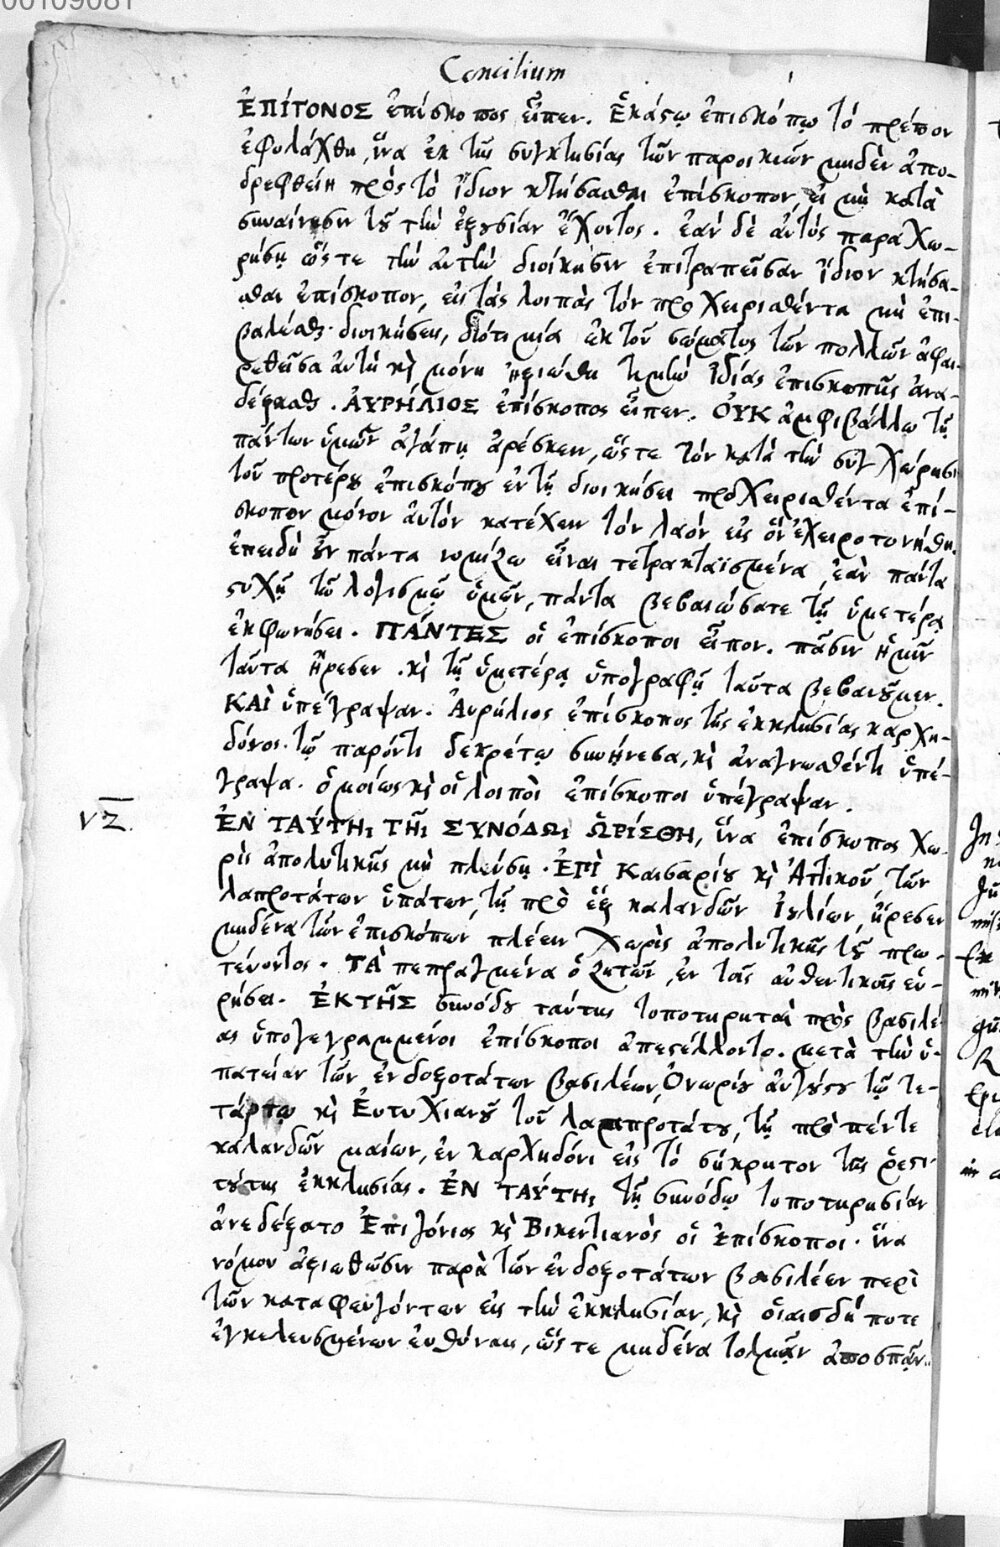 00109081
Concilium
ἘΠΙΓΟΝΟΣ ἐπίσκοπος εἶπεν. Ἑκάστῳ ἐπισκόπῳ τὸ πρέπον
ἐφυλάχθη, ἵνα ἐκ τῆς συγκτησίας τῶν παροικιῶν μηδὲν ἀπο-
δρεφθείη πρὸς τὸ ἴδιον κτήσασθαι ἐπίσκοπον, εἰ μὴ κατὰ
συναίνεσιν τοῦ τὴν ἐξουσίαν ἔχοντος. ἐὰν δὲ αὐτὸς παραχω-
ρήσῃ ὥστε τὴν αὐτὴν διοίκησιν ἐπιτραπεῖσαν ἴδιον κτήσα-
σθαι ἐπίσκοπον, εἰς τὰς λοιπὰς τὸν προχειρισθέντα μὴ ἐπι-
βαλέσθαι διοικήσεις, διότι μία ἐκ τοῦ σώματος τῶν πολλῶν ἀφαι-
ρεθεῖσα αὐτὴ καὶ μόνη ἠξιώθη τιμὴν ἰδίας ἐπισκοπῆς ἀνα-
δέξασθαι. ἈΥΡΗΛΙΟΣ ἐπίσκοπος εἶπεν. ΟΥΚ ἀμφιβάλλω τῇ
πάντων ὑμῶν ἀγάπῃ ἀρέσκειν, ὥστε τὸν κατὰ τὴν συγχώρησιν
τοῦ προτέρου ἐπισκόπου ἐν τῇ διοικήσει προχειρισθέντα ἐπί-
σκοπον μόνον αὐτὸν κατέχειν τὸν λαὸν εἰς ὃν ἐχειροτονήθη.
ἐπειδὴ οὖν πάντα νομίζω εἶναι τετρακταϊσμένα, ἐὰν πάντα
στοιχῇ τῷ λογισμῷ ὑμῶν, πάντα βεβαιώσατε τῇ ὑμετέρᾳ
ἐκφωνήσει. ΠΑΝΤΕΣ οἱ ἐπίσκοποι εἶπον. πᾶσιν ἡμῖν
ταῦτα ἤρεσεν. καὶ τῇ ἡμετέρᾳ ὑπογραφῇ ταῦτα βεβαιοῦμεν.
ΚΑΙ ὑπέγραψαν. Αὐρήλιος ἐπίσκοπος τῆς ἐκκλησίας καρχη-
δόνος. τῷ παρόντι δεκρέτῳ συνῄνεσα, καὶ ἀναγνωσθέντι ὑπέ-
γραψα. ὁμοίως καὶ οἱ λοιποὶ ἐπίσκοποι ὑπέγραψαν.
νζ.
ἘΝ ΤΑΥΤΗι ΤΗι ΣΥΝΟΔΩι ὩΡΙΣΘΗ, ἵνα ἐπίσκοπος χω-
ρὶς ἀπολυτικῆς μὴ πλεύσῃ. ἘΠΙ Καισαρίου καὶ Ἀττικοῦ τῶν
λαπροτάτων ὑπάτων, τῇ πρὸ ἓξ καλανδῶν Ἰουλίων, ἤρεσεν
μηδένα τῶν ἐπισκόπων πλέειν χωρὶς ἀπολυτικῆς τοῦ πρω-
τεύοντος. ΤΑ πεπραγμένα ὁ ζητῶν, ἐν τοῖς αὐθεντικοῖς εὑ-
ρήσει. ἘΚ ΤΗΣ συνόδου ταύτης τοποτηρηταὶ πρὸς βασιλέ-
ας ὑπογεγραμμένοι ἐπίσκοποι ἀπεστέλλοντο. μετὰ τὴν ὑ-
πατείαν τῶν ἐνδοξοτάτων βασιλέων, Ὀνωρίου αὐγούστου τῷ τε-
τάρτῳ καὶ Εὐτυχιανοῦ τοῦ λαμπροτάτου, τῇ πρὸ πέντε
καλανδῶν μαίων, ἐν καρχηδόνι εἰς τὸ σήκρητον τῆς ῥεστι-
τούτης ἐκκλησίας. ἘΝ ΤΑΥΤΗι τῇ συνόδῳ τοποτηρησίαν
ἀνεδέξατο Ἐπιγόνιος καὶ Βικεντιανὸς οἱ ἐπίσκοποι. ἵνα
νόμου ἀξιωθῶσιν παρὰ τῶν ἐνδοξοτάτων βασιλέων περὶ
τῶν καταφευγόντων εἰς τὴν ἐκκλησίαν, καὶ οἱαισδήποτε
ἐγκελευσμένων εὐθύναις, ὥστε μηδένα τολμᾷν ἀποσπᾷν